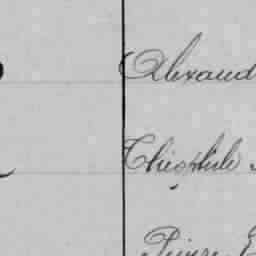 Alexand
Théophile
Pierre